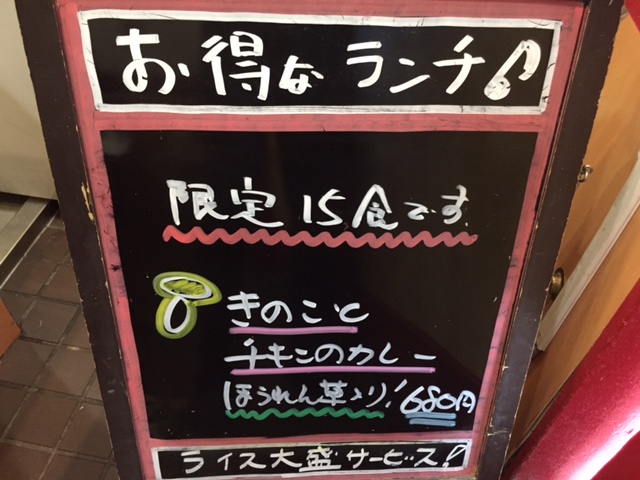 お得なランチ♪
限定15食です
きのこと
チキンのカレー
ほうれん草入り! 680円
ライス大盛サービス!